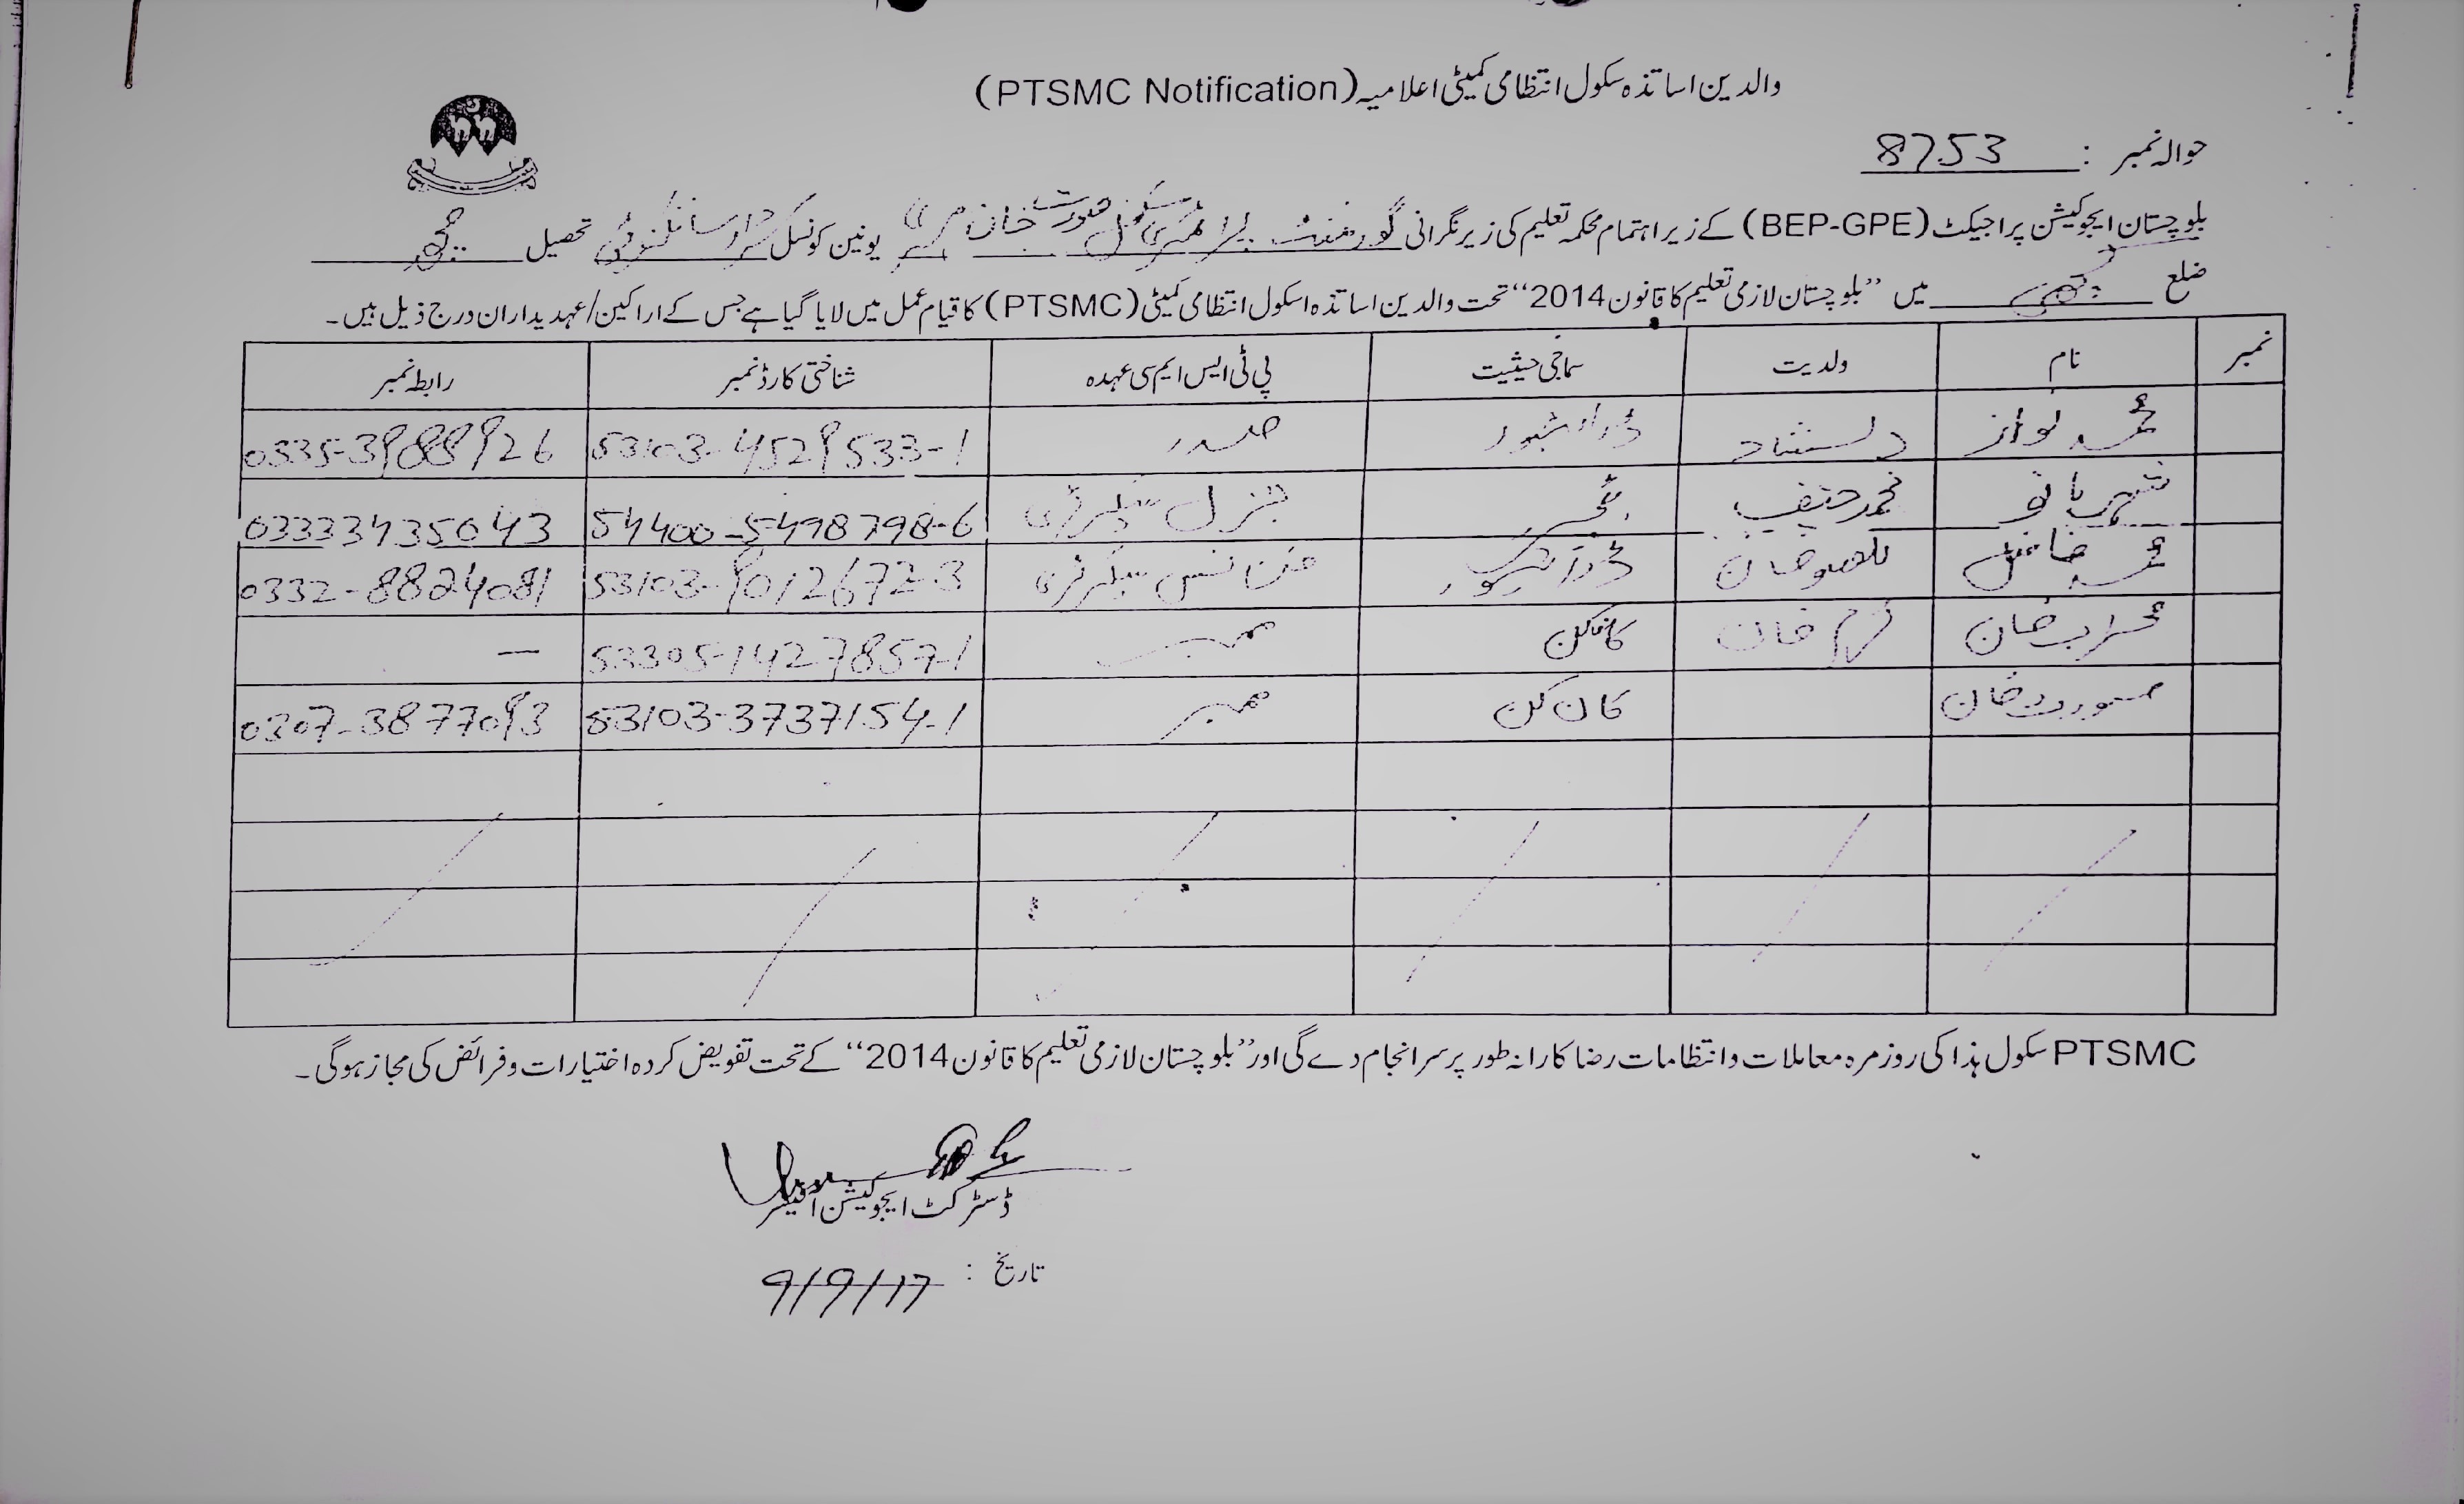 والدین اساتذہ سکول انتظامی کمیٹی اعلامیہ (PTSMC Notification)
حوالہ نمبر : 8753
بلوچستان ایجوکیشن پراجیکٹ (BEP-GPE) کے زیر اہتمام محکمہ تعلیم کی زیر نگرانی گورنمنٹ پرائمری سکول صورت خان یونین کونسل تحصیل مچھ
ضلع کچھی میں ”بلوچستان لازمی تعلیم کا قانون 2014“ تحت والدین اساتذہ اسکول انتظامی کمیٹی (PTSMC) کا قیام عمل میں لایا گیا ہے جس کے اراکین/عہدیداران درج ذیل ہیں۔
نمبر نام ولدیت سماجی حیثیت پی ٹی ایس ایم سی عہدہ شناختی کارڈ نمبر رابطہ نمبر
محمد نواز دلشاد ڈرائیور صدر 53103-4529533-1 0335-3988926
شہر بانو محمد حنیف ٹیچر جنرل سیکرٹری 54400-5498798-6 03333435043
محمد فاضل ڈرائیور فنانس سیکرٹری 53103-9012672-3 0332-8824081
محراب خان خان کانکن ممبر 53305-1427857-1 –
صورت خان کان کن ممبر 53103-3737154-1 0307-3877093
PTSMC سکول ہذا کی روزمرہ معاملات و انتظامات رضا کارانہ طور پر سرانجام دے گی اور ”بلوچستان لازمی تعلیم کا قانون 2014“ کے تحت تفویض کردہ اختیارات و فرائض کی مجاز ہوگی۔
ڈسٹرکٹ ایجوکیشن آفیسر
تاریخ : 9/9/17